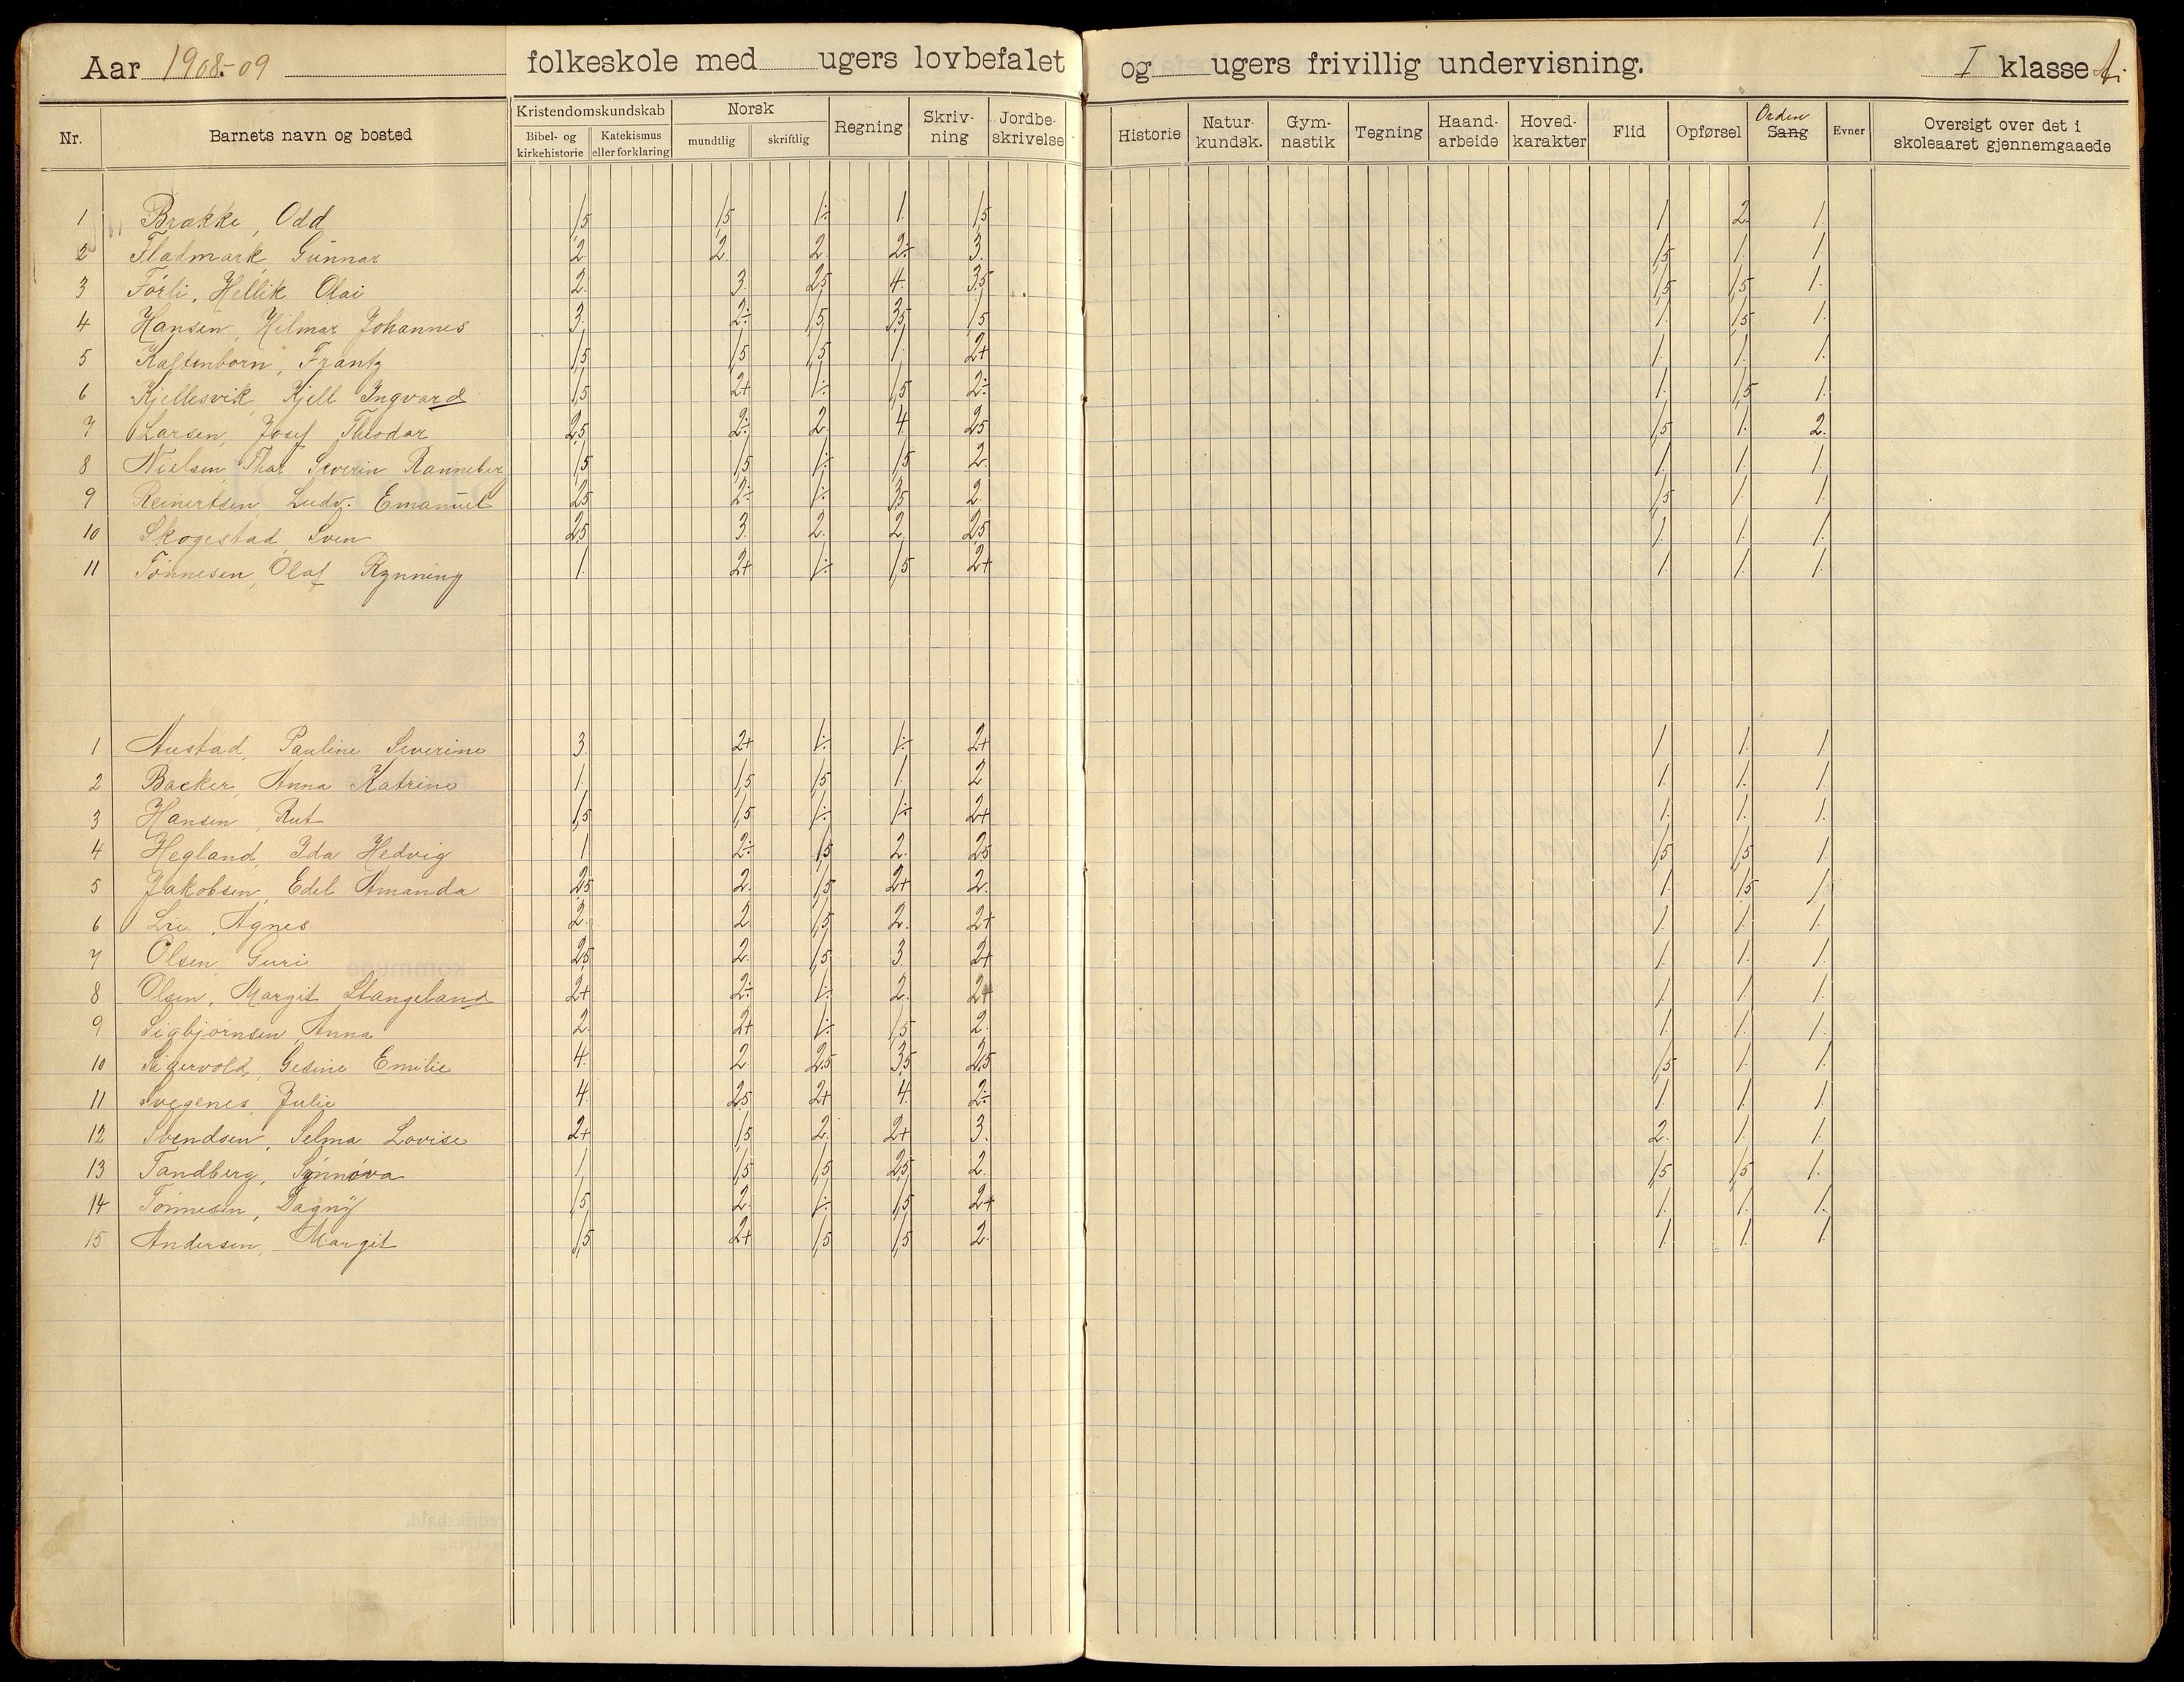 Aar 1908.-09 folkeskole med ugers lovbefalet og ugers frivillig undervisning. I klasse A.
Nr. Barnets navn og bosted Kristendomskundskab Bibel- og kirkehistorie Katekismus eller forklaring Norsk mundtlig skriftlig Regning Skriv-ning Jordbe-skrivelse Historie Natur-kundsk. Gym-nastik Tegning Haand-arbeide Hoved-karakter Flid Opførsel Orden Sang Evner Oversigt over det i skoleaaret gjennemgaaede
1 Brække, Odd 1,5 1,5 1÷ 1. 1,5 1 2. 1.
2 Fladmark, Gunnar 2 2 2 2÷ 3. 1,5 1. 1.
3 Förli, Hellik Olai 2. 3. 2,5 4. 3,5 1,5 1,5 1.
4 Hansen, Hilmar Johannes 3. 2÷ 1,5 3,5 1,5 1. 1,5 1.
5 Kaltenborn, Frantz 1,5 1,5 1,5 1. 2+ 1. 1. 1.
6 Kjellesvik, Kjell Ingvard 1,5 2+ 1÷ 1,5 2÷ 1. 1,5 1.
7 Larsen, Josef Theodor 2,5 2÷ 2. 4 2,5 1,5 1. 2.
8 Nielsen, Thor Severin Ranneber 1,5 1,5 1÷ 1,5 2. 1. 1. 1.
9 Reinertsen, Ludv. Emanuel 2,5 2÷ 1÷ 3,5 2. 1,5 1. 1.
10 Skogestad, Sven 2,5 3. 2. 2. 2,5 1. 1. 1.
11 Tönnesen, Olaf Rynning 1. 2+ 1÷ 1,5 2+ 1. 1. 1.
1 Austad, Pauline Severine 3. 2+ 1÷ 1÷ 2+ 1 1. 1
2 Backer, Anna Katrine 1. 1,5 1,5 1. 2 1. 1. 1.
3 Hansen, Rut 1,5 1,5 1÷ 1÷ 2+ 1. 1. 1.
4 Hegland, Ida Hedvig 1 2÷ 1,5 2. 2,5 1,5 1,5 1.
5 Jakobsen, Edel Amanda 2,5 2. 1,5 2+ 2. 1. 1,5 1
6 Lie, Agnes 2. 2. 1,5 2. 2+ 1. 1. 1.
7 Olsen, Guri 2,5 2. 1,5 3. 2+ 1. 1. 1.
8 Olsen, Margit Stangeland 2+ 2÷ 1÷ 2. 2+ 1. 1. 1.
9 Sigbjörnsen, Anna 2. 2+ 1÷ 1,5 2. 1. 1. 1.
10 Sigervold, Gesine Emilie 4. 2 2,5 3,5 2,5 1,5 1. 1.
11 Svegenes, Julie 4. 2,5 2+ 4. 2÷ 1. 1. 1.
12 Svendsen, Selma Lovise 2+ 1,5 2. 2+ 3. 2. 1. 1.
13 Tandberg, Synnöva 1. 1,5 1,5 2,5 2. 1,5 1,5 1.
14 Tönnesen, Dagny 1,5 2. 1÷ 1,5 2+ 1. 1. 1.
15 Andersen, Margit 1,5 2+ 1,5 1,5 2. 1. 1. 1.